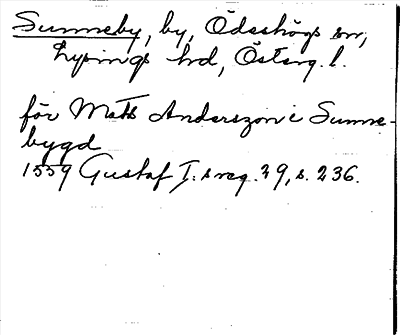 Sunneby, by, Ödeshögs sn,
Lysings hd, Österg. l.
för Mats Anderszon i Sunne-
bygd
1559 Gustaf I:s reg. 29, s. 236.